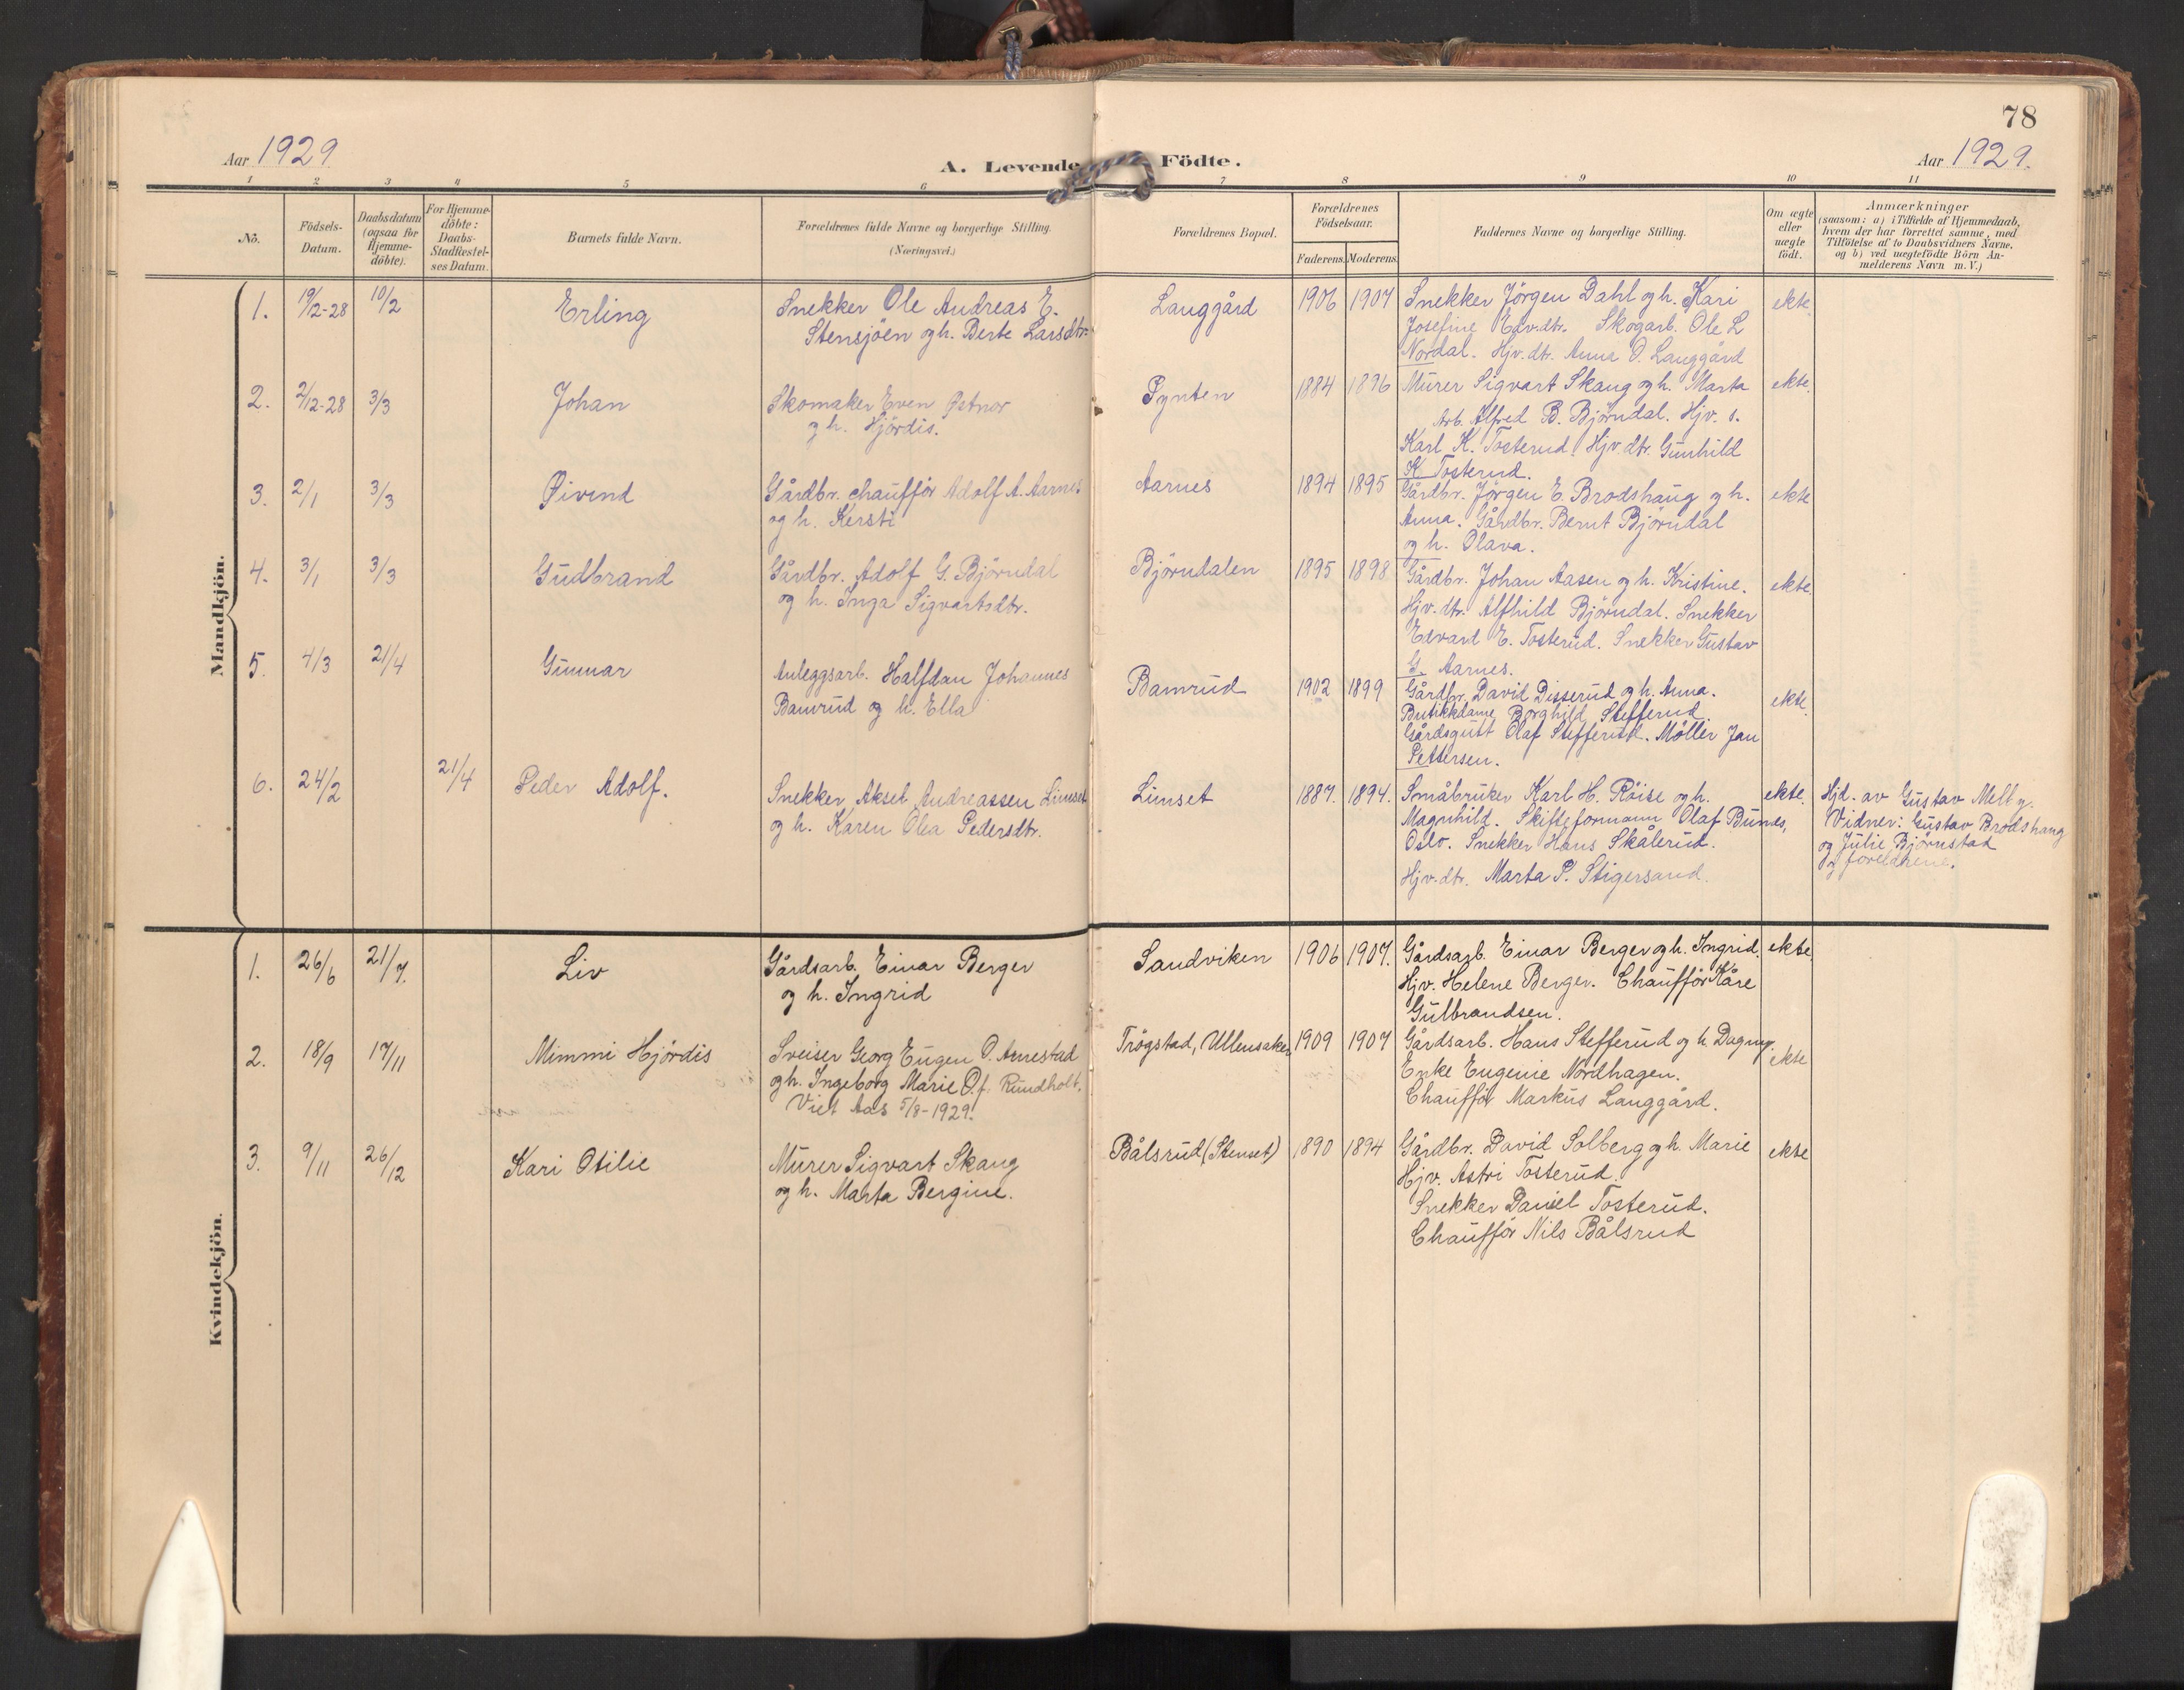 78
Aar 1929.
A. Levende Födte.
Aar 1929.
1 2 3 4 5 6 7 8 9 10 11
No.
Födsels-
Datum.
Daabsdatum
(ogsaa for
Hjemme-
döbte).
For Hjemme-
döbte:
Daabs-
Stadfæstel-
ses Datum.
Barnets fulde Navn.
Forældrenes fulde Navne og borgerlige Stilling.
(Næringsvei.)
Forældrenes Bopæl.
Forældrenes
Födselsaar.
Faderens. Moderens.
Faddernes Navne og borgerlige Stilling.
Om ægte
eller
uægte
födt.
Anmærkninger
(saasom: a) i Tilfælde af Hjemmedaab,
hvem der har forrettet samme, med
Tilföielse af to Daabsvidners Navne,
og b) ved uægtefödte Börn An-
melderens Navn m. V.)
Mandkjön.
1. 19/2-28 10/2 Erling
Snekker Ole Andreas E.
Stensjöen og h. Berte Larsdtr.
Langgård 1906 1907
Snekker Jörgen Dahl og h. Kari
Josefine Edv.dtr. Skogarb. Ole L
Nordal. Hjv. dtr. Anna O. Langgård
ekte.
2. 2/12-28 3/3 Johan
Skomaker Even Østnor
og h. Hjördis.
Pynten 1884 1896
Murer Sigvart Skaug og h. Marta
Arb. Alfred B. Björndal. Hjv. s.
Karl K. Tosterud. Hjv. dtr. Gunhild
K Tosterud.
ekte.
3. 2/1 3/3 Øivind
Gårdbr. chaufför Adolf A. Aarnes
og h. Kersti
Aarnes 1894 1895
Gårdbr. Jörgen E. Brodshaug og h.
Anna. Gårdbr. Bernt Björndal
og h. Olava.
ekte
4. 3/1 3/3 Gudbrand
Gårdbr. Adolf G. Björndal
og h. Inga Sigvartsdtr.
Björndalen 1895 1898
Gårdbr. Johan Aasen og h. Kristine.
Hjv. dtr. Alfhild Björndal. Snekker
Edvard E. Tosterud. Snekker Gustav
G. Aarnes.
ekte.
5. 4/3 21/4 Gunnar
Anleggsarb. Halfdan Johannes
Bamrud og h. Ella
Bamrud 1902 1899
Gårdbr. David Disserud og h. Anna.
Butikkdame Borghild Stefferud.
Gårdsgutt Olaf Stefferud. Möller Jan
Pettersen.
ekte.
6. 24/2 21/4 Peder Adolf.
Snekker Aksel Andreassen Limset
og h. Karen Olea Pedersdtr.
Limset 1887. 1894.
Småbruker Karl H. Röise og h.
Magnhild. Skifteformann Olaf Bunes,
Oslo. Snekker Hans Skålerud.
Hjv. dtr. Marta P. Stigersand.
ekte.
Hjd. av Gustav Melby.
Vidner: Gustav Brodshaug
og Julie Björnstad
og foreldrene.
Kvindekjön.
1. 26/6 21/7. Liv
Gårdsarb. Einar Berger
og h. Ingrid
Sandviken 1906 1907.
Gårdsarb. Einar Berger og h. Ingrid.
Hjv. Helene Berger. Chaufför Kåre
Gulbrandsen.
ekte.
2. 18/9 17/11 Mimmi Hjördis
Sveiser Georg Eugen O. Arnestad
og h. Ingeborg Marie O. f. Rundholt.
Viet Aas 5/8-1929.
Trögstad, Ullensaker 1909 1907
Gårdsarb. Hans Stefferud og h. Dagny.
Enke Eugenie Nordhagen.
Chaufför Markus Langgård.
ekte
3. 9/11 26/12 Kari Otilie
Murer Sigvart Skaug
og h. Marta Bergine.
Bålsrud (Stenset) 1890 1894
Gårdbr. David Solberg og h. Marie
Hjv. Astri Tosterud.
Snekker Daniel Tosterud.
Chaufför Nils Bålsrud
ekte